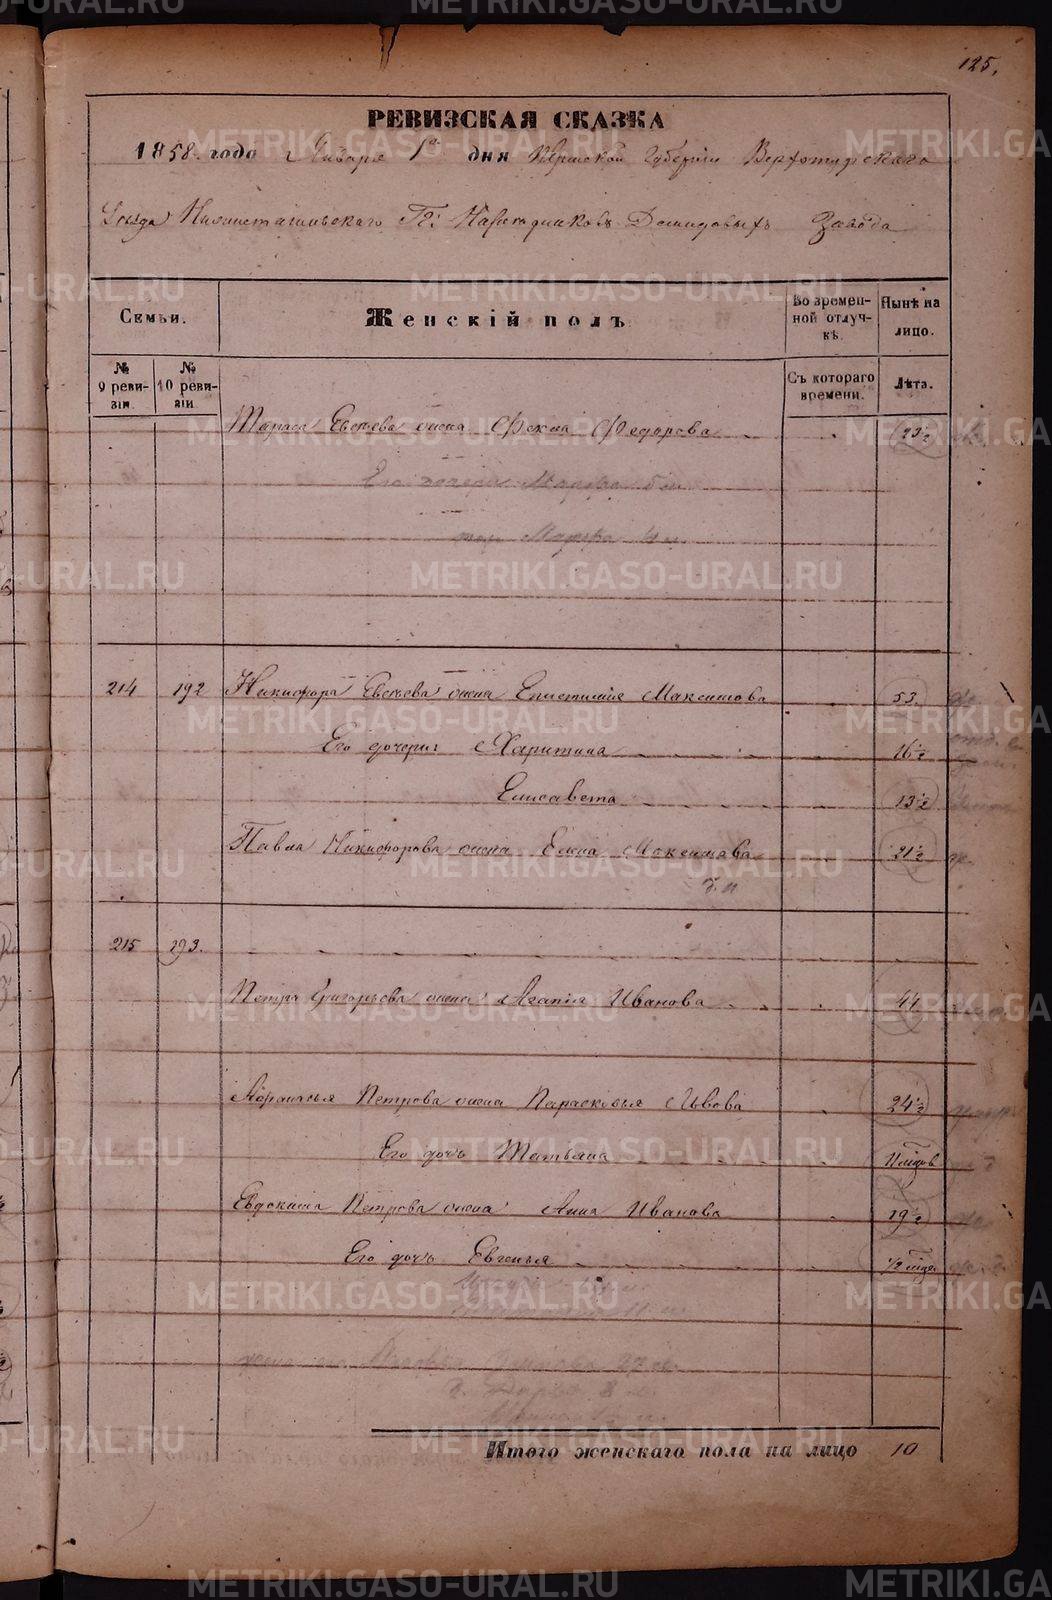 125.
РЕВИЗСКАЯ СКАЗКА
1858 года Января 1го дня Пермской Губернiи Верхотурскаго
Уезда Нижнетагильскаго Гг: Наследниковъ Демидовыхъ Завода
Семьи.
Женскiй полъ
Во времен-
ной отлуч-
кѣ.
Нынѣ на
лицо.
№
9 реви-
зiи.
№
10 реви-
зiи
Съ котораго
времени.
Лѣта.
Тараса Евсѣева жена Фекла Федорова 23½
Его дочери Марфа 5 л.
Марфа
214 192 Никифора Евсѣева жена Епистимiя Максимова 53
Его дочери Харитина 16½
Елисавета 13½
Павла Никифорова жена Елена Максимова 21½
215 193.
Петра Григорьева жена Агапiя Иванова 44
Афанасья Петрова жена Парасковья Львова 24½
Его дочь Татьяна
Евдокима Петрова жена Анна Иванова 19½
Его дочь Евгенья
Итого женскаго пола на лицо 10
METRIKI.GASO-URAL.RU